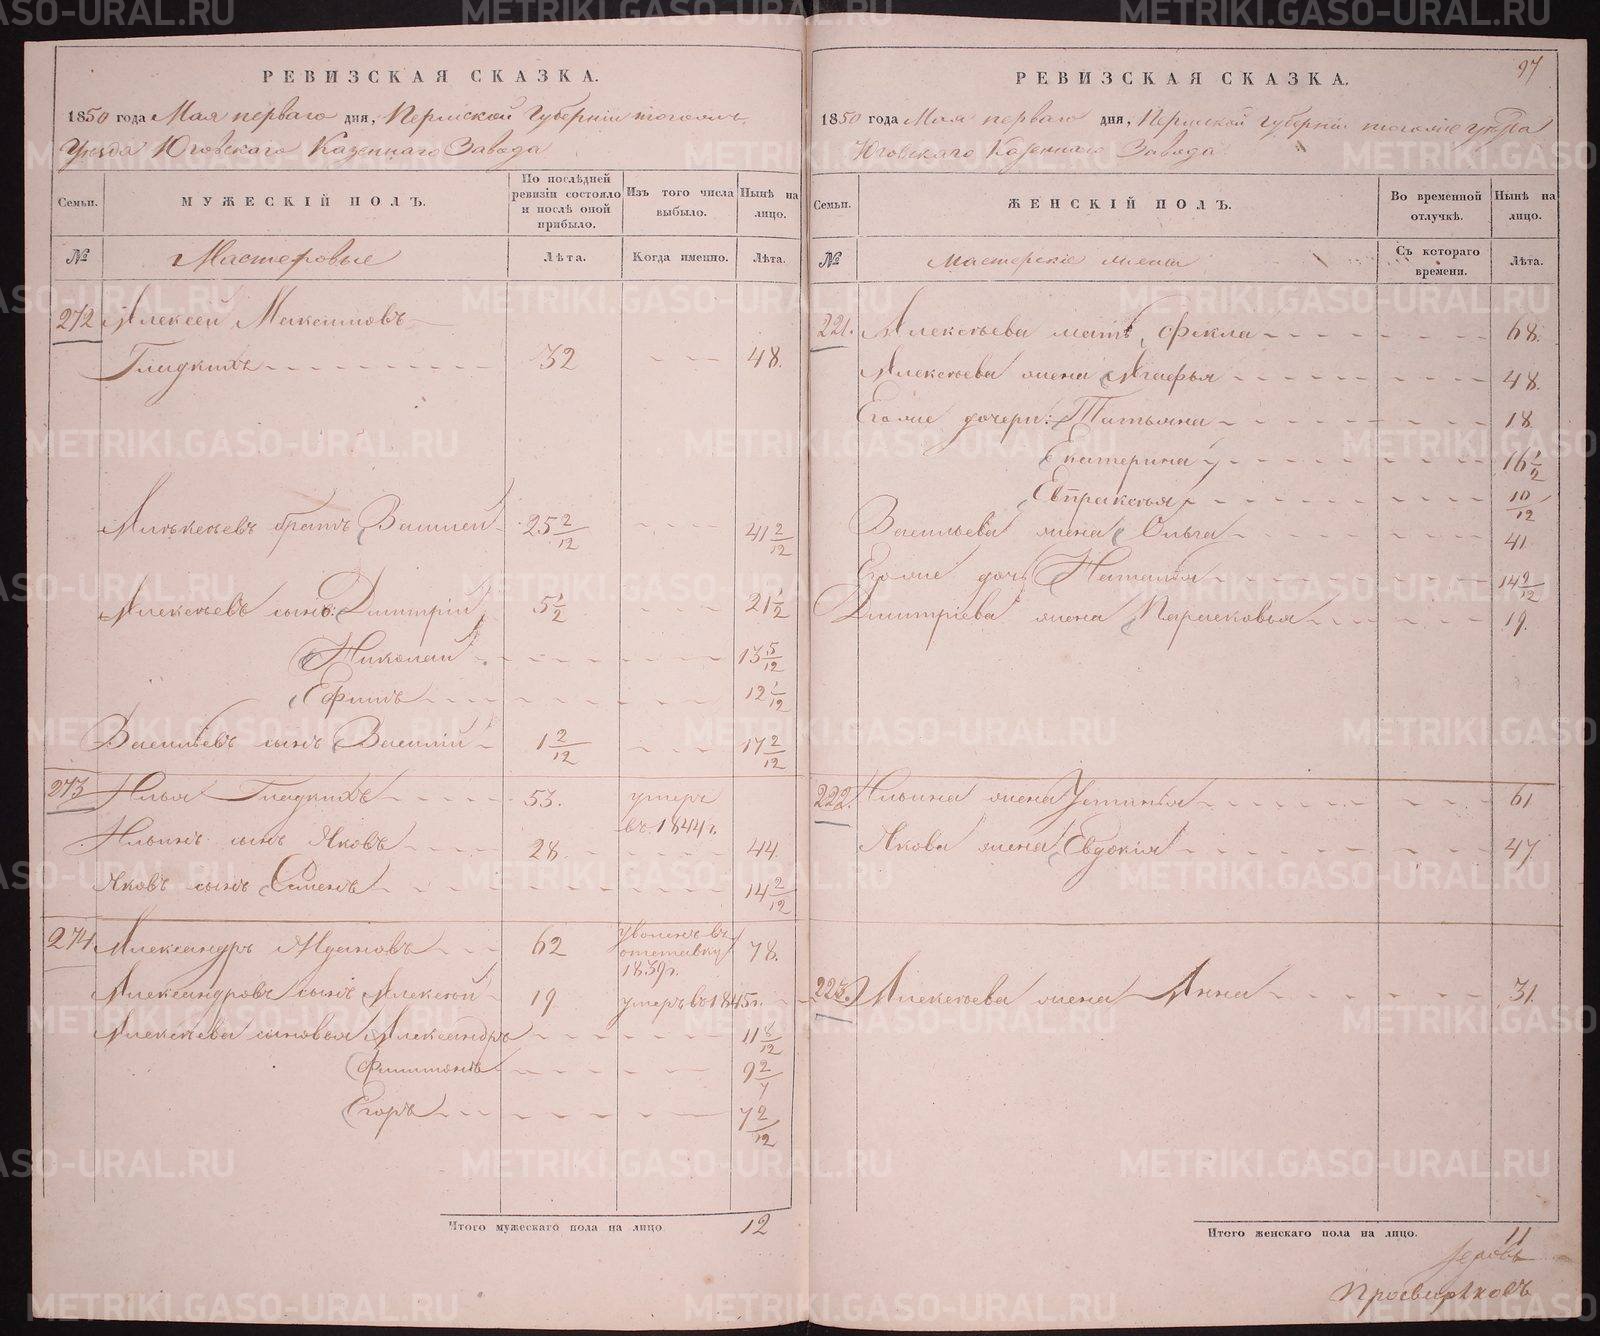 РЕВИЗСКАЯ СКАЗКА.
1850 года Мая перваго дня, Пермской Губернiи тогожъ
Уѣзда Юговскаго Казеннаго Завода
Семьи.
МУЖЕСКІЙ ПОЛЪ.
По послѣдней ревизіи состояло и послѣ оной прибыло.
Изъ того числа выбыло.
Ныне на лицо.
№
Мастеровые
Лѣта.
Когда именно.
Лѣта.
272 Алексей Максимовъ
Гладкихъ 32 48.
Алексеевъ братъ Василей 25 2/12 41 2/12
Алексеевъ сынъ: Дмитрій 5 1/2 21 1/2
Николай 13 5/12
Ефимъ 12 1/12
Васильевъ сынъ Василій 1 2/12 17 2/12
273 Илья Гладкихъ 53. умеръ
въ 1844 г.
Ильинъ сынъ Яковъ 28. 44.
Яковъ сынъ Семенъ 14 2/12
274 Александръ 62 уволенъ въ
отставку
1839 г. 78.
Александровъ сынъ Алексей 19. умеръ въ 1845 г.
Алексеева сыновья Александръ 11 8/12
Филимонъ 9 2/
Егоръ 7 2/12
Итого мужескаго пола на лицо 12
97
РЕВИЗСКАЯ СКАЗКА.
1850 года Мая перваго дня, Пермской губерніи тогоже уѣзда
Юговскаго Казеннаго Завода
Семьи.
ЖЕНСКІЙ ПОЛЪ.
Во временной отлучкѣ.
Ныне на лицо.
№
Мастерскіе жены
Съ котораго времени.
Лѣта.
221. Алексеева мать Фекла 68.
Алексеева жена Агафья 48.
Егоже дочери: Татьяна 18
Екатерина 16 1/2
Евпраксья 10/12
Васильева жена Ольга 41
Егоже дочь Наталья 14 2/12
Дмитріева жена Парасковья 19.
222. Ильина жена Устинья 61
Якова жена Евдокія 47.
223. Алексеева жена Анна 31.
Итого женскаго пола на лицо. 11
Просвиряковъ
METRIKI.GASO-URAL.RU